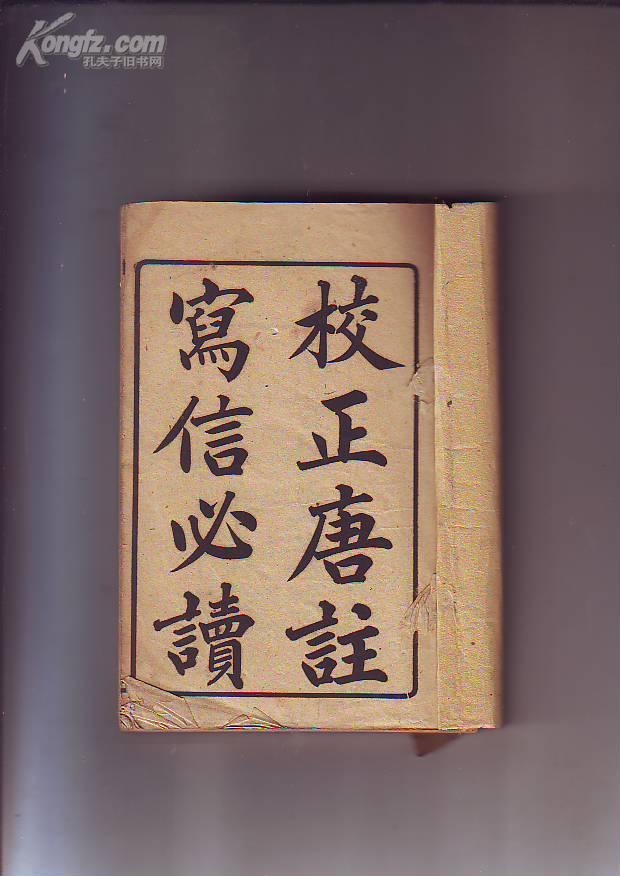 Kongfz.com
孔夫子旧书网
校正唐註
寫信必讀